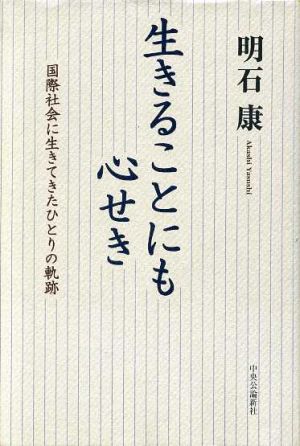 明石 康
Akashi Yasushi
生きることにも
心せき
国際社会に生きてきたひとりの軌跡
中央公論新社